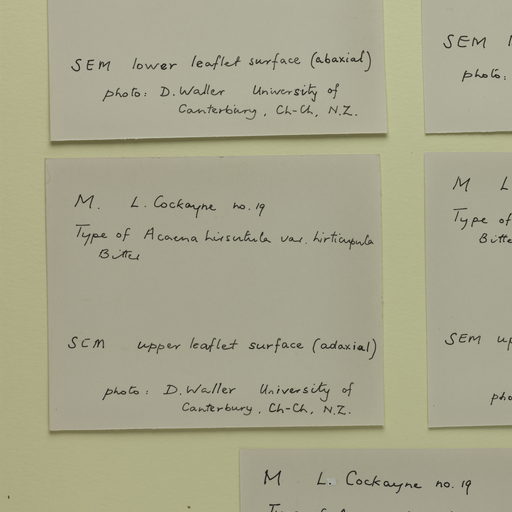 SEM lower leaflet surface (abaxial)
photo: D. Waller University of
Canterbury, Ch-Ch, N.Z.
SEM
photo:
M. L. Cockayne no. 19
Type of Acaena hirsutula var. hirticupula
Bitter
SEM upper leaflet surface (adaxial)
photo: D. Waller University of
Canterbury, Ch-Ch, N.Z.
M L
Type of
Bitte
SEM up
pho
M L. Cockayne no. 19